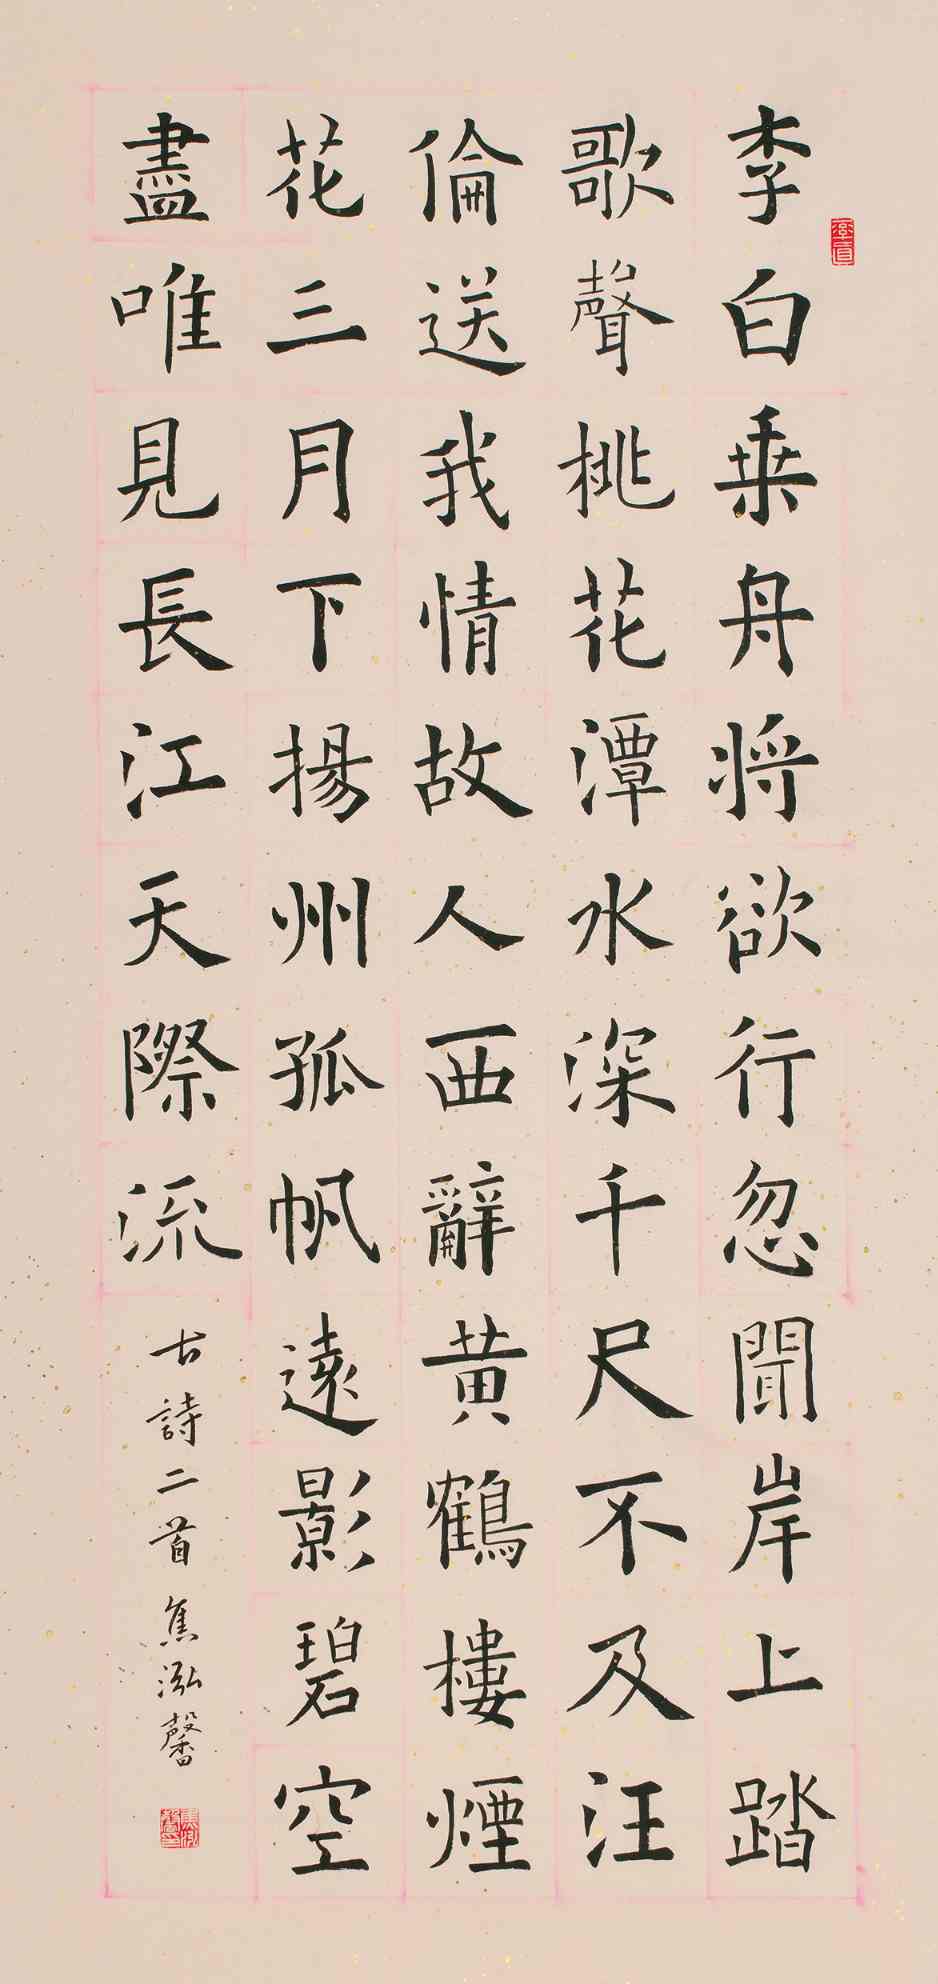 李白乗舟将欲行忽聞岸上踏
歌聲桃花潭水深千尺不及汪
倫送我情故人西辭黄鶴樓煙
花三月下揚州孤帆遠影碧空
盡唯見長江天際流
古詩二首焦泓馨